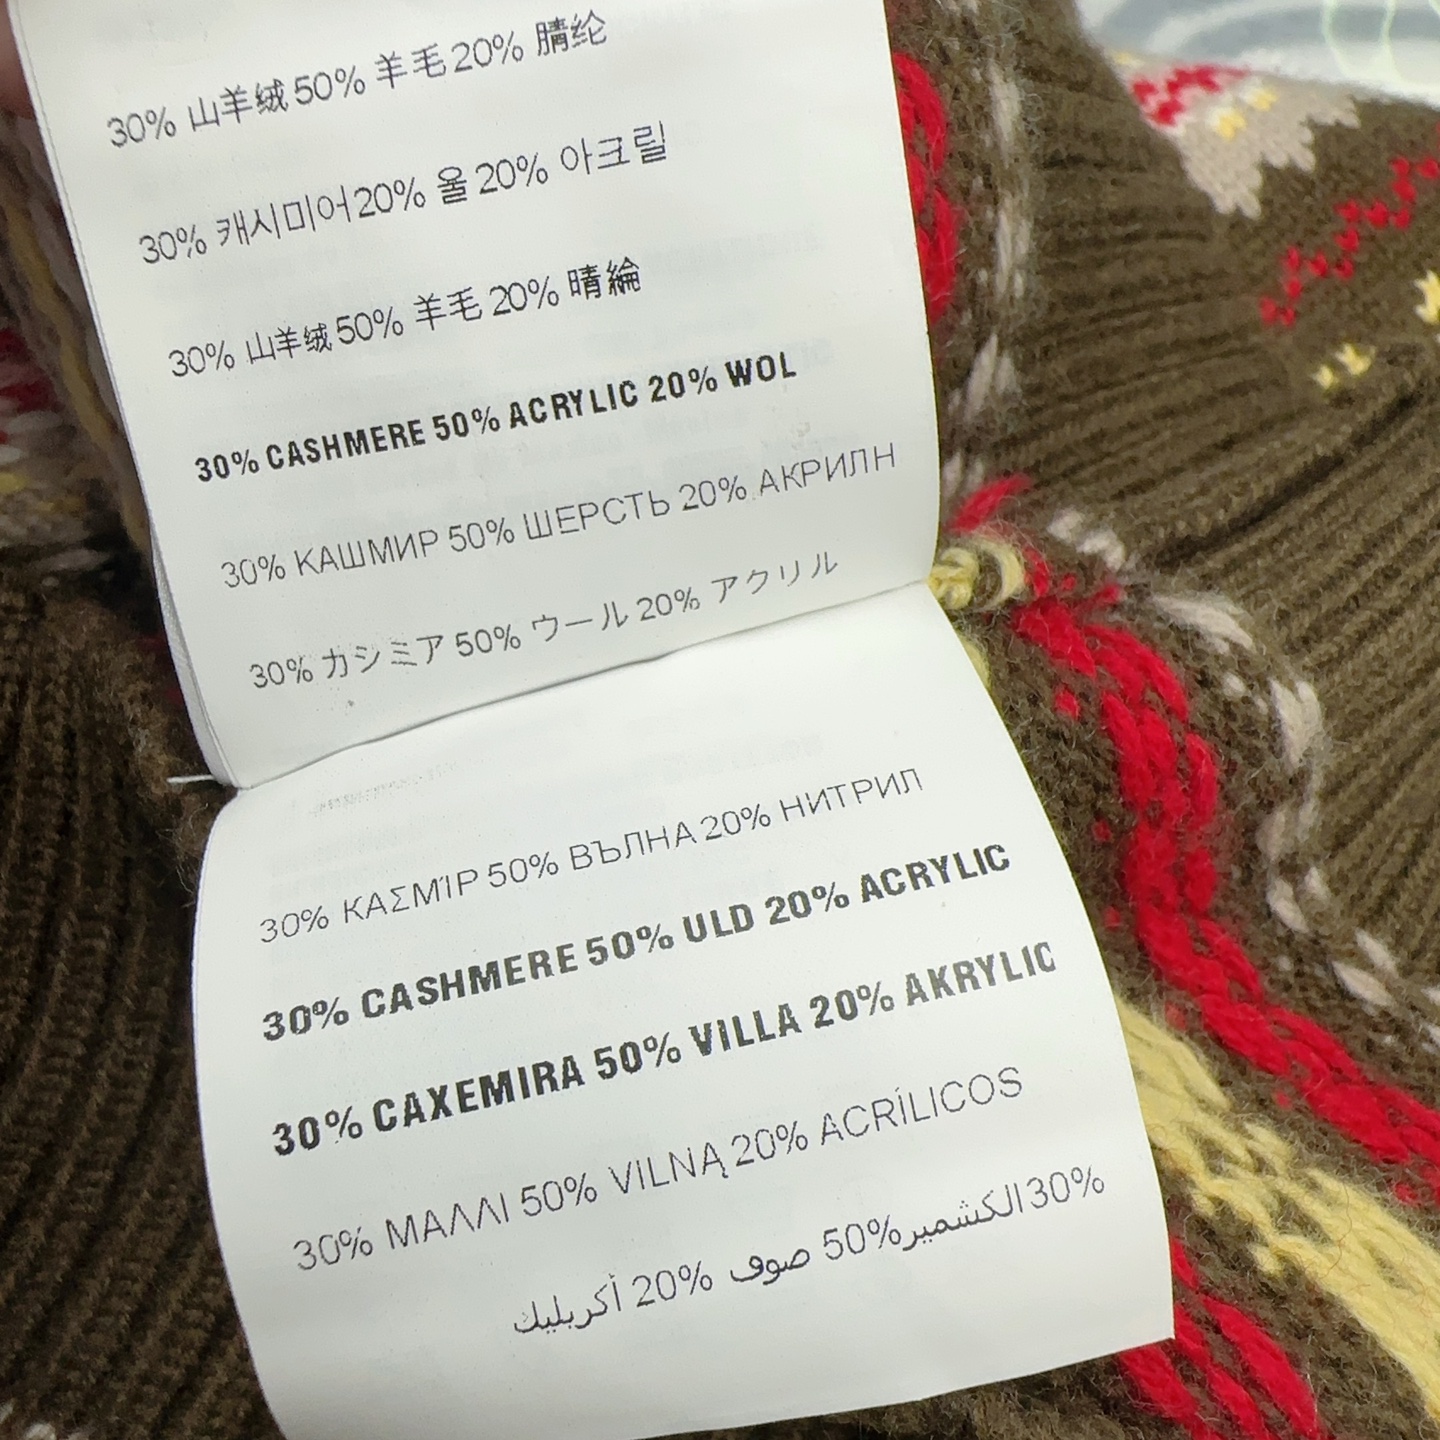 30% 山羊绒 50% 羊毛 20% 腈纶
30% 캐시미어 20% 울 20% 아크릴
30% 山羊绒 50% 羊毛 20% 晴綸
30% CASHMERE 50% ACRYLIC 20% WOL
30% КАШМИР 50% ШЕРСТЬ 20% АКРИЛН
30% カシミア 50% ウール 20% アクリル
30% ΚΑΣΜΊΡ 50% ВЪЛНА 20% НИТРИЛ
30% CASHMERE 50% ULD 20% ACRYLIC
30% CAXEMIRA 50% VILLA 20% AKRYLIC
30% ΜΑΛΛΙ 50% VILNĄ 20% ACRÍLICOS
30% الكشمير 50% صوف 20% أكريليك